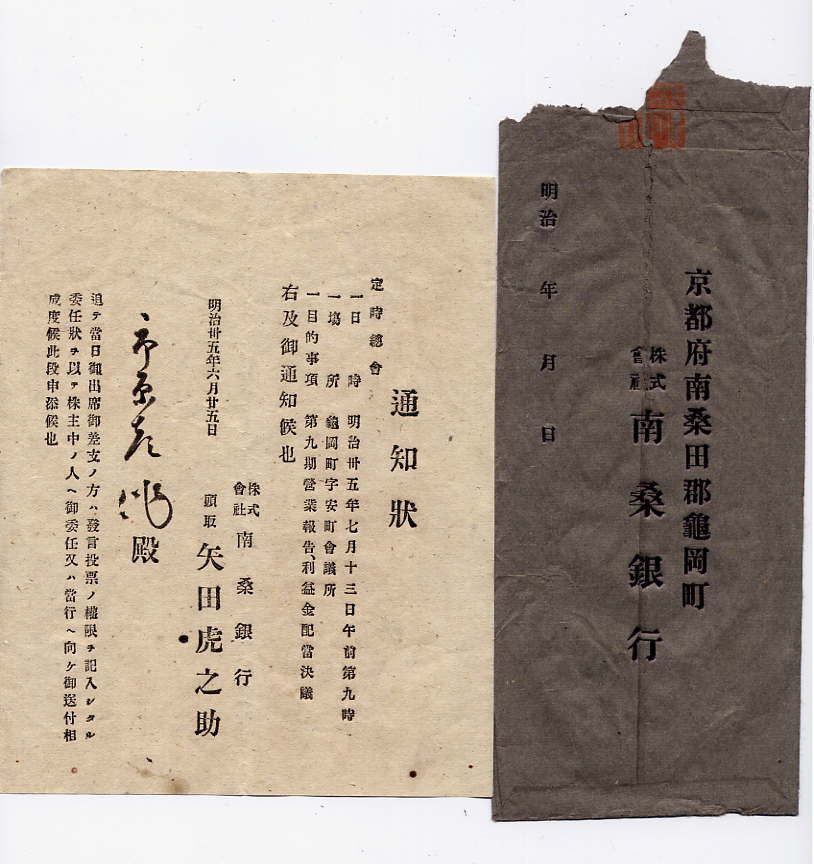 京都府南桑田郡龜岡町
株式會社 南桑銀行
明治 年 月 日
通知狀
定時總會
一日 時 明治卅五年七月十三日午前第九時
一塲 所 龜岡町字安町會議所
一目的事項 第九期營業報告、利益金配當決議
右及御通知候也
明治卅五年六月廿五日
株式會社 南桑銀行
頭取 矢田虎之助
殿
追テ當日御出席御差支ノ方ハ發言投票ノ權限ヲ記入シタル
委任狀ヲ以テ株主中ノ人ヘ御委任又ハ當行ヘ向ケ御送付相
成度候此段申添候也